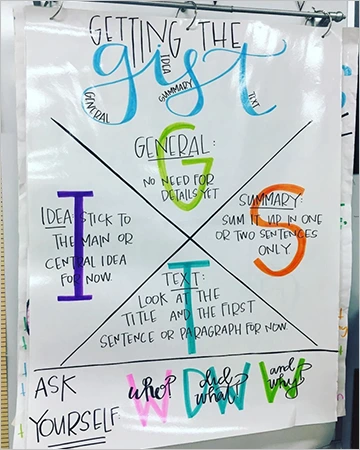 GETTING THE
gist
GENERAL
IDEA
SUMMARY
TEXT
G
GENERAL:
NO NEED FOR
DETAILS YET
I
IDEA: STICK TO
THE MAIN OR
CENTRAL IDEA
FOR NOW.
S
SUMMARY:
SUM IT UP IN ONE
OR TWO SENTENCES
ONLY.
T
TEXT:
LOOK AT THE
TITLE AND THE FIRST
SENTENCE OR PARAGRAPH FOR NOW.
ASK
YOURSELF:
W
who?
DW
did what?
W
and why?